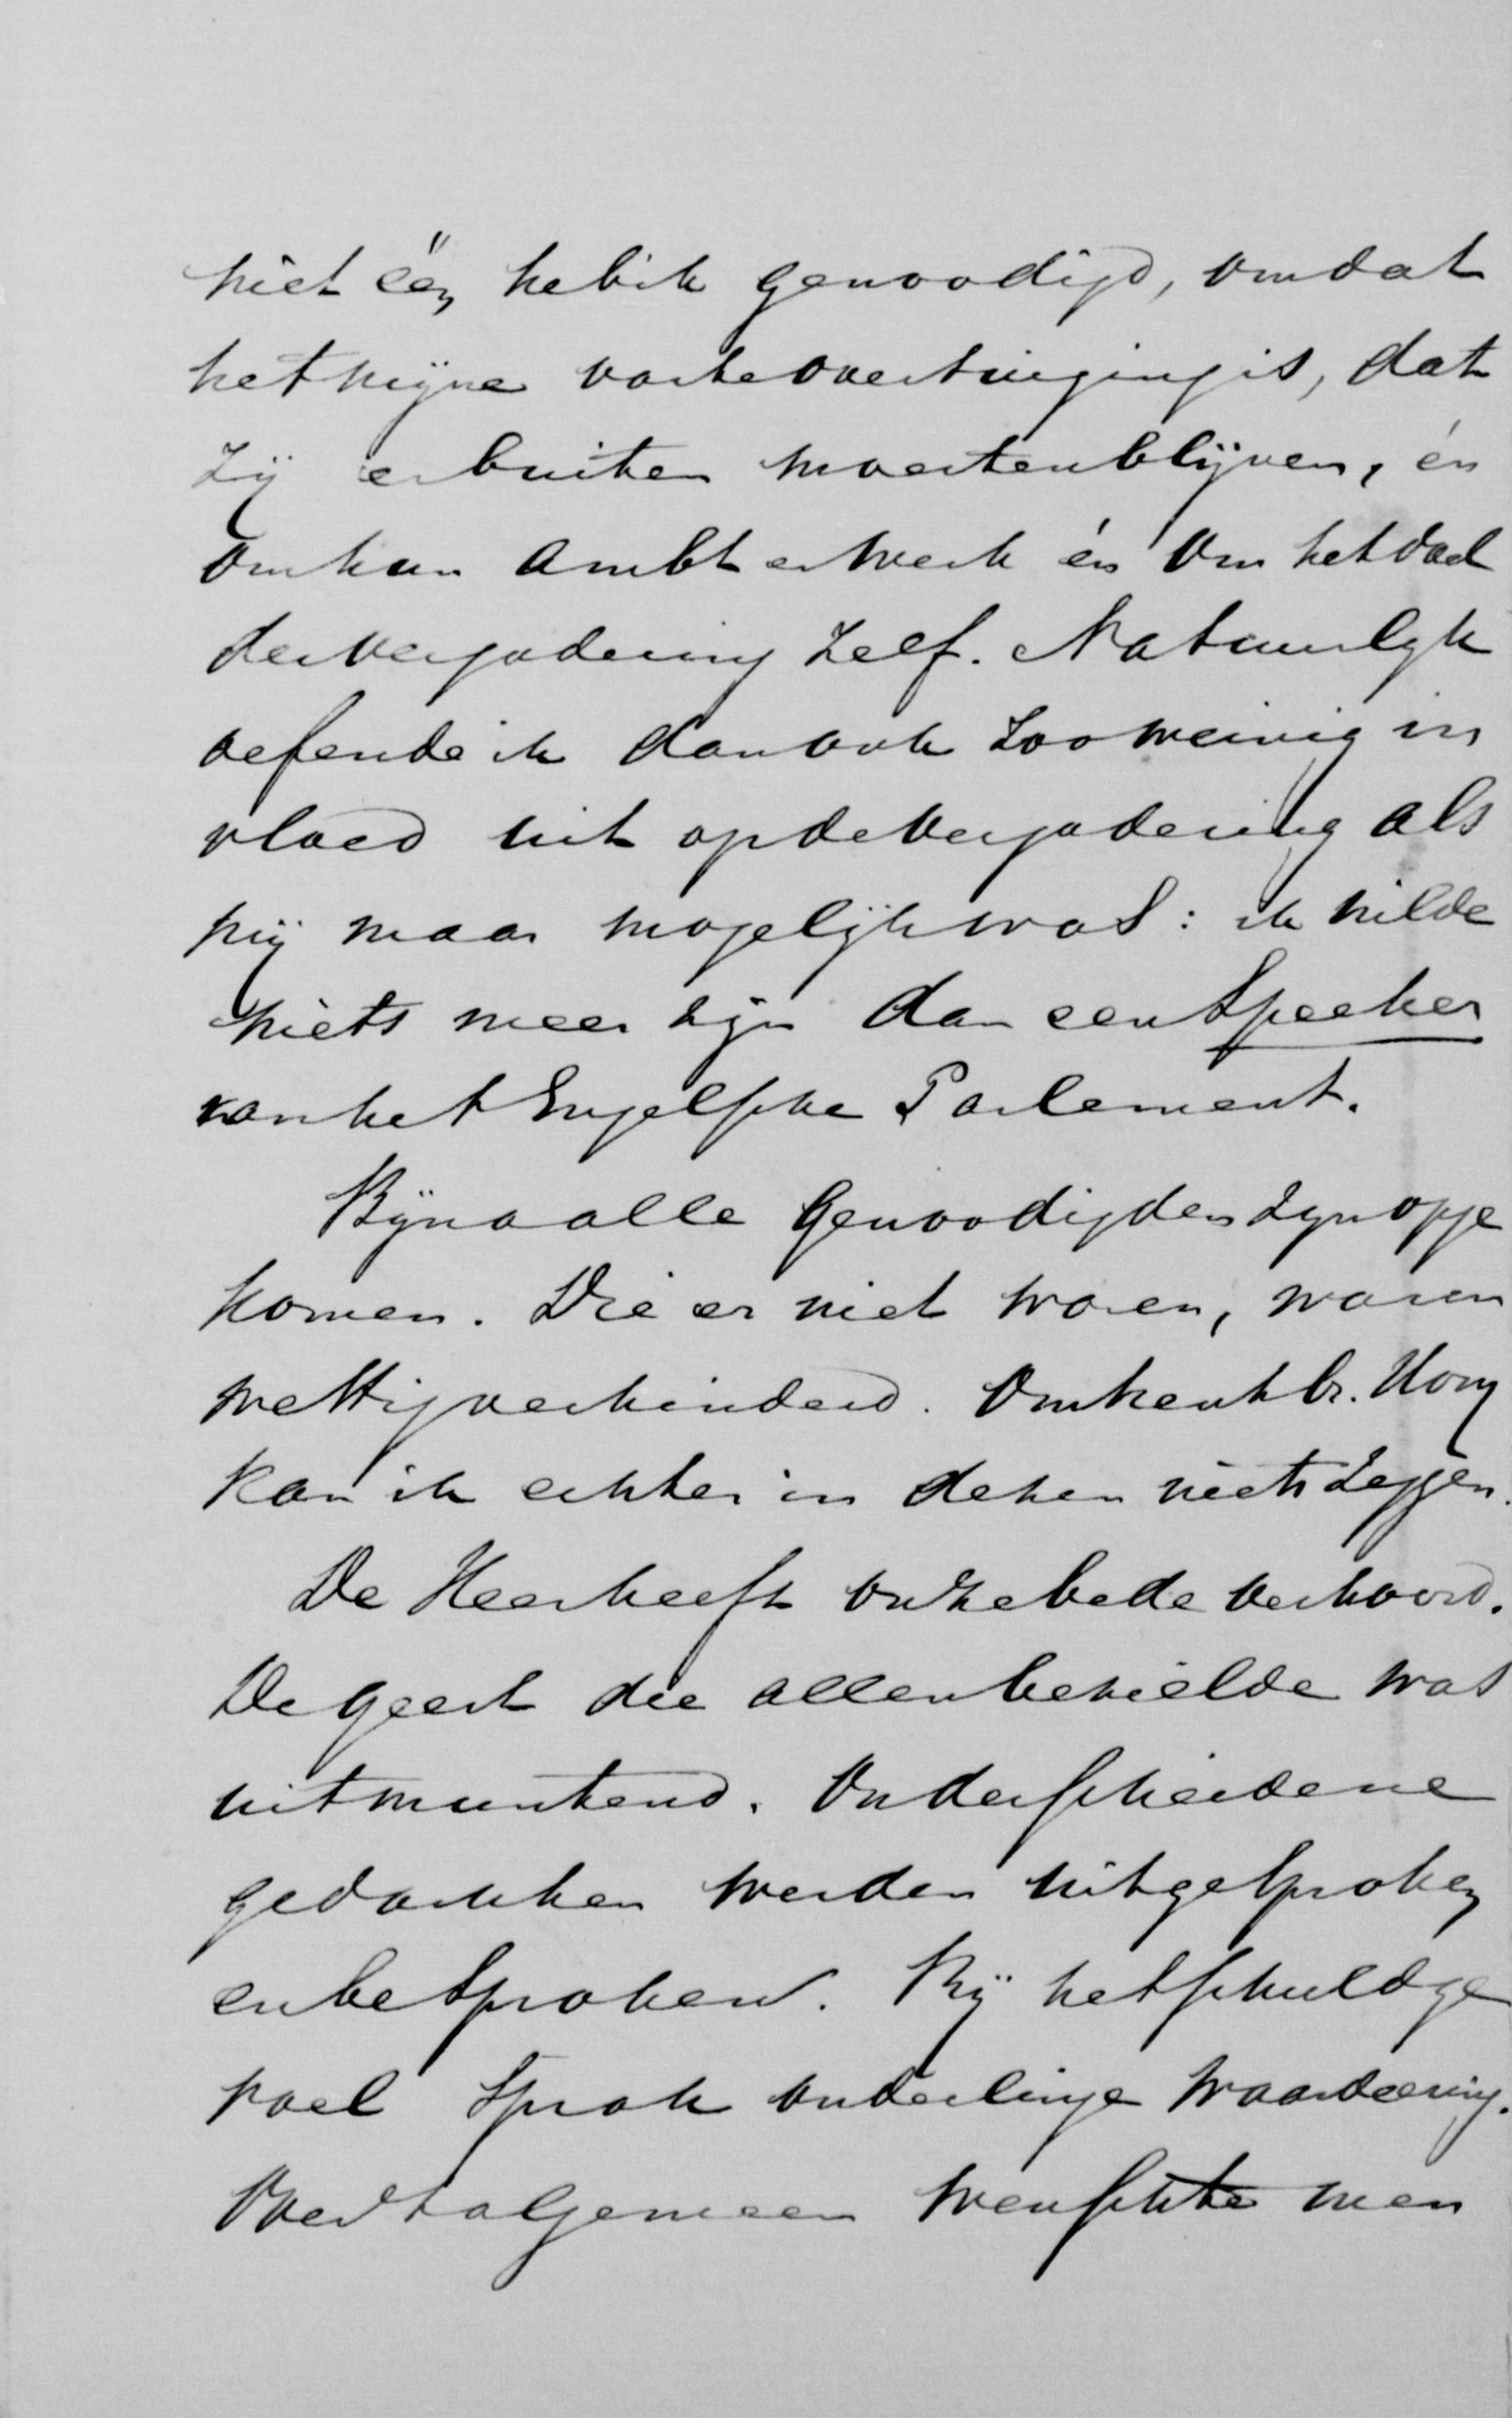 niet één heb ik genoodigd, omdat
het mijne vaste overtuiging is, dat
zij er buiten moesten blijven, én
om hun ambt en werk én om het doel
der vergadering zelf. Natuurlyk
oefende ik dan ook zoo weinig in
vloed uit op de vergadering als
mij maar mogelijk was: ik wilde
niets meer zijn dan een Speeker
van het Engelsche Parlement.
Bijna alle genoodigden zyn opge
komen. Die er niet waren, waren
wettig verhinderd. Omtrent br. Hony
kan ik echter in dezen niets zeggen.
De Heer heeft onze bede verhoord.
De geest die allen bezielde was
uitmuntend. Onderscheidene
gedachten werden uitgesproken
en besproken. Bij het schuldge
voel sprak onderlinge waardeering.
Over 't algemeen wenschte men